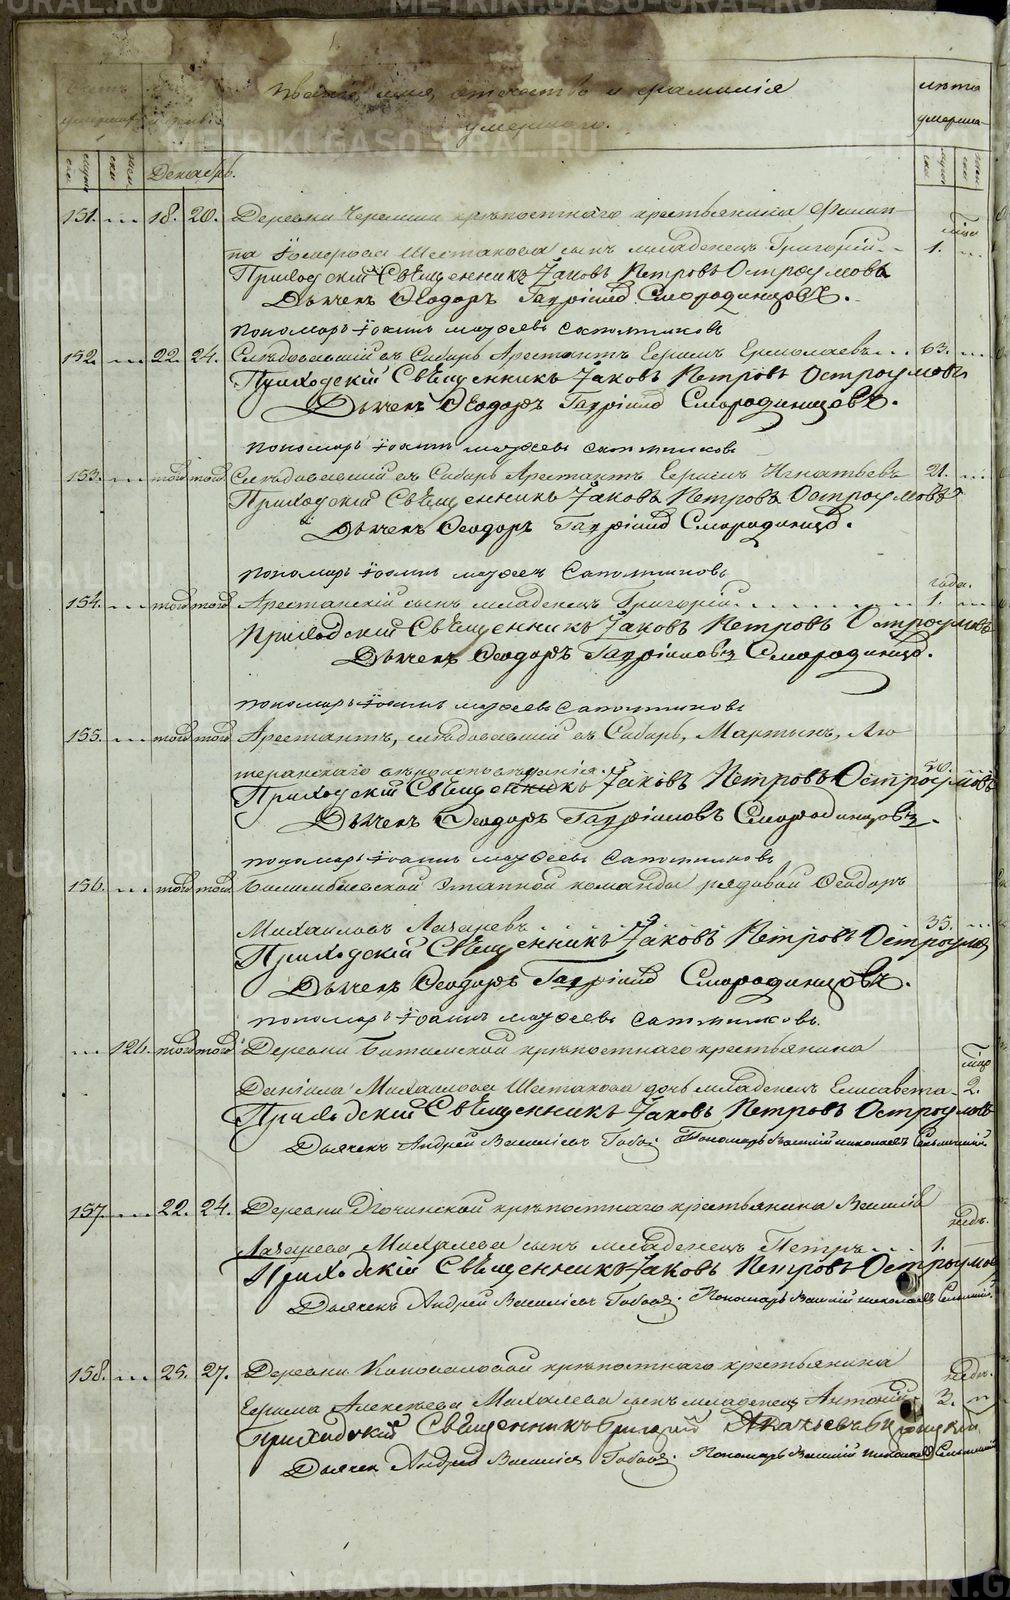 METRIKI.GASO-URAL.RU
Званіе, имя, отечество и фамилія
умершаго.
лѣта
умерша-
Декабрь.
151. 18. 20. Деревни Черемши крѣпостнаго крестьянина Филип-
па Шестакова сынъ младенецъ Григорій 1.
Приходскій Священникъ Іаковъ Петровъ Остроумовъ
Дьячекъ Ѳеодоръ Гавріилов Смородинцовъ.
пономарь Іоаннъ Матѳеевъ Сапожниковъ
152. 22. 24. Слѣдовавшій въ Сибирь Арестантъ Ефимъ Ермолаевъ 63.
Приходскій Священникъ Іаковъ Петровъ Остроумовъ
Дьячекъ Ѳеодоръ Гавріилов Смородинцовъ.
пономарь Іоаннъ Матѳеевъ Сапожниковъ
153. того того Слѣдовавшій въ Сибирь Арестантъ Ефимъ Игнатьевъ 21.
Приходскій Священникъ Іаковъ Петровъ Остроумовъ
Дьячекъ Ѳеодоръ Гавріилов Смородинцов.
пономарь Іоаннъ Матѳеевъ Сапожниковъ
года.
154. того того Арестанскій сынъ младенецъ Григорій 1.
Приходскій Священникъ Іаковъ Петровъ Остроумовъ
Дьячекъ Ѳеодоръ Гавріиловъ Смородинцов.
пономарь Іоаннъ Матѳеевъ Сапожниковъ
155. того того Арестантъ, слѣдовавшій въ Сибирь, Мартынъ, Лю-
теранскаго вѣроисповѣданія 50.
Приходскій Священникъ Іаковъ Петровъ Остроумовъ
Дьячекъ Ѳеодоръ Гавріиловъ Смородинцовъ.
пономарь Іоаннъ Матѳеевъ Сапожниковъ
156. того того Билимбаевской Этапной команды рядовой Ѳеодоръ
Михайловъ Лазаревъ 35.
Приходскій Священникъ Іаковъ Петровъ Остроумов
Дьячекъ Ѳеодоръ Гавріилов Смородинцовъ.
пономарь Іоаннъ Матѳеевъ Сапожниковъ.
126. того того Деревни Битимской крѣпостнаго крестьянина
Даніила Михайлова Шестакова дочь младенецъ Елисавета 2.
Приходскій Священникъ Іаковъ Петровъ Остроумовъ
Дьячекъ Андрей Василіевъ Пономарь Василій Николаевъ
157. 22. 24. Деревни крѣпостнаго крестьянина Василія
недѣ.
Лазарева Михалева сынъ младенецъ Петръ 1.
Приходскій Священникъ Іаковъ Петровъ Остроумов
Дьячекъ Андрей Василіевъ Пономарь Василій Николаевъ
158. 25. 27. Деревни Коноваловой крѣпостнаго крестьянина
недѣ.
Ефима Алексѣева Михалева сынъ младенецъ Антоній 3.
Приходскій Священникъ Григорій
Дьячек Андрей Василіев Пономарь Василій Николаев
METRIKI.GASO-URAL.RU